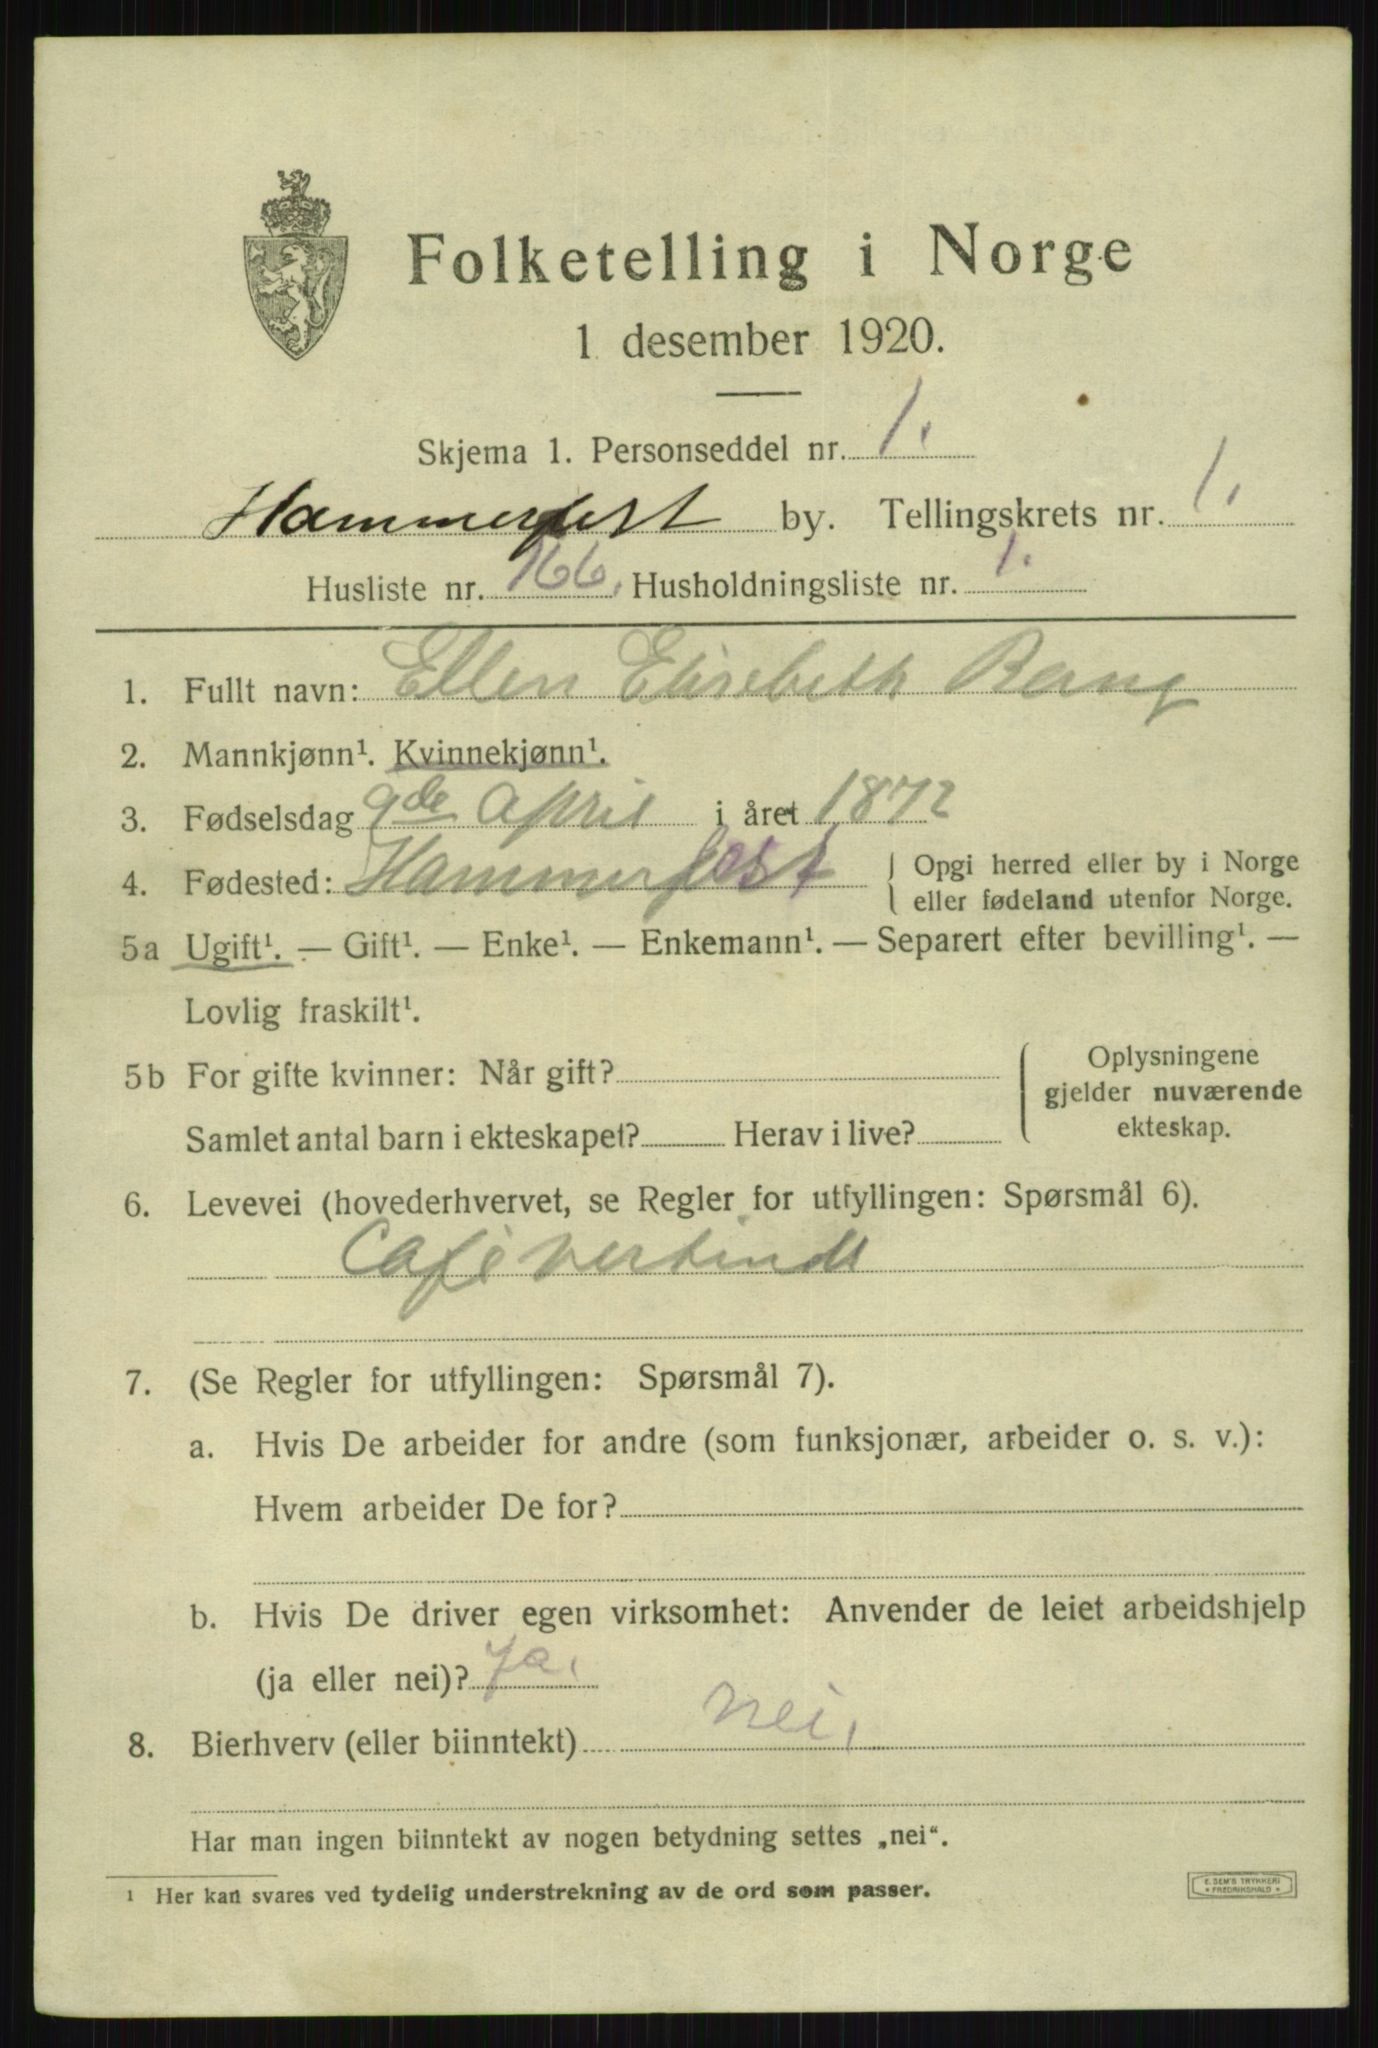 Folketelling i Norge
1 desember 1920.
Skjema 1. Personseddel nr. 1.
Hammerfest by. Tellingskrets nr. 1.
Husliste nr. 166. Husholdningsliste nr. 1.
1. Fullt navn: Ellen Elisebeth Bang
2. Mannkjønn¹. Kvinnekjønn¹.
3. Fødselsdag 9de April i året 1872
4. Fødested: Hammerfest Opgi herred eller by i Norge
eller fødeland utenfor Norge.
5a Ugift¹. — Gift¹. — Enke¹. — Enkemann¹. — Separert efter bevilling¹. —
Lovlig fraskilt¹.
5b For gifte kvinner: Når gift?
Samlet antal barn i ekteskapet? Herav i live?
Oplysningene
gjelder nuværende
ekteskap.
6. Levevei (hovederhvervet, se Regler for utfyllingen: Spørsmål 6).
Cafévertinde
7. (Se Regler for utfyllingen: Spørsmål 7).
a. Hvis De arbeider for andre (som funksjonær, arbeider o. s. v.):
Hvem arbeider De for?
b. Hvis De driver egen virksomhet: Anvender de leiet arbeidshjelp
(ja eller nei)? Ja.
8. Bierhverv (eller biinntekt) nei.
Har man ingen biinntekt av nogen betydning settes „nei“.
¹ Her kan svares ved tydelig understrekning av de ord som passer.
E. SEM'S TRYKKERI
• FREDRIKSHALD •